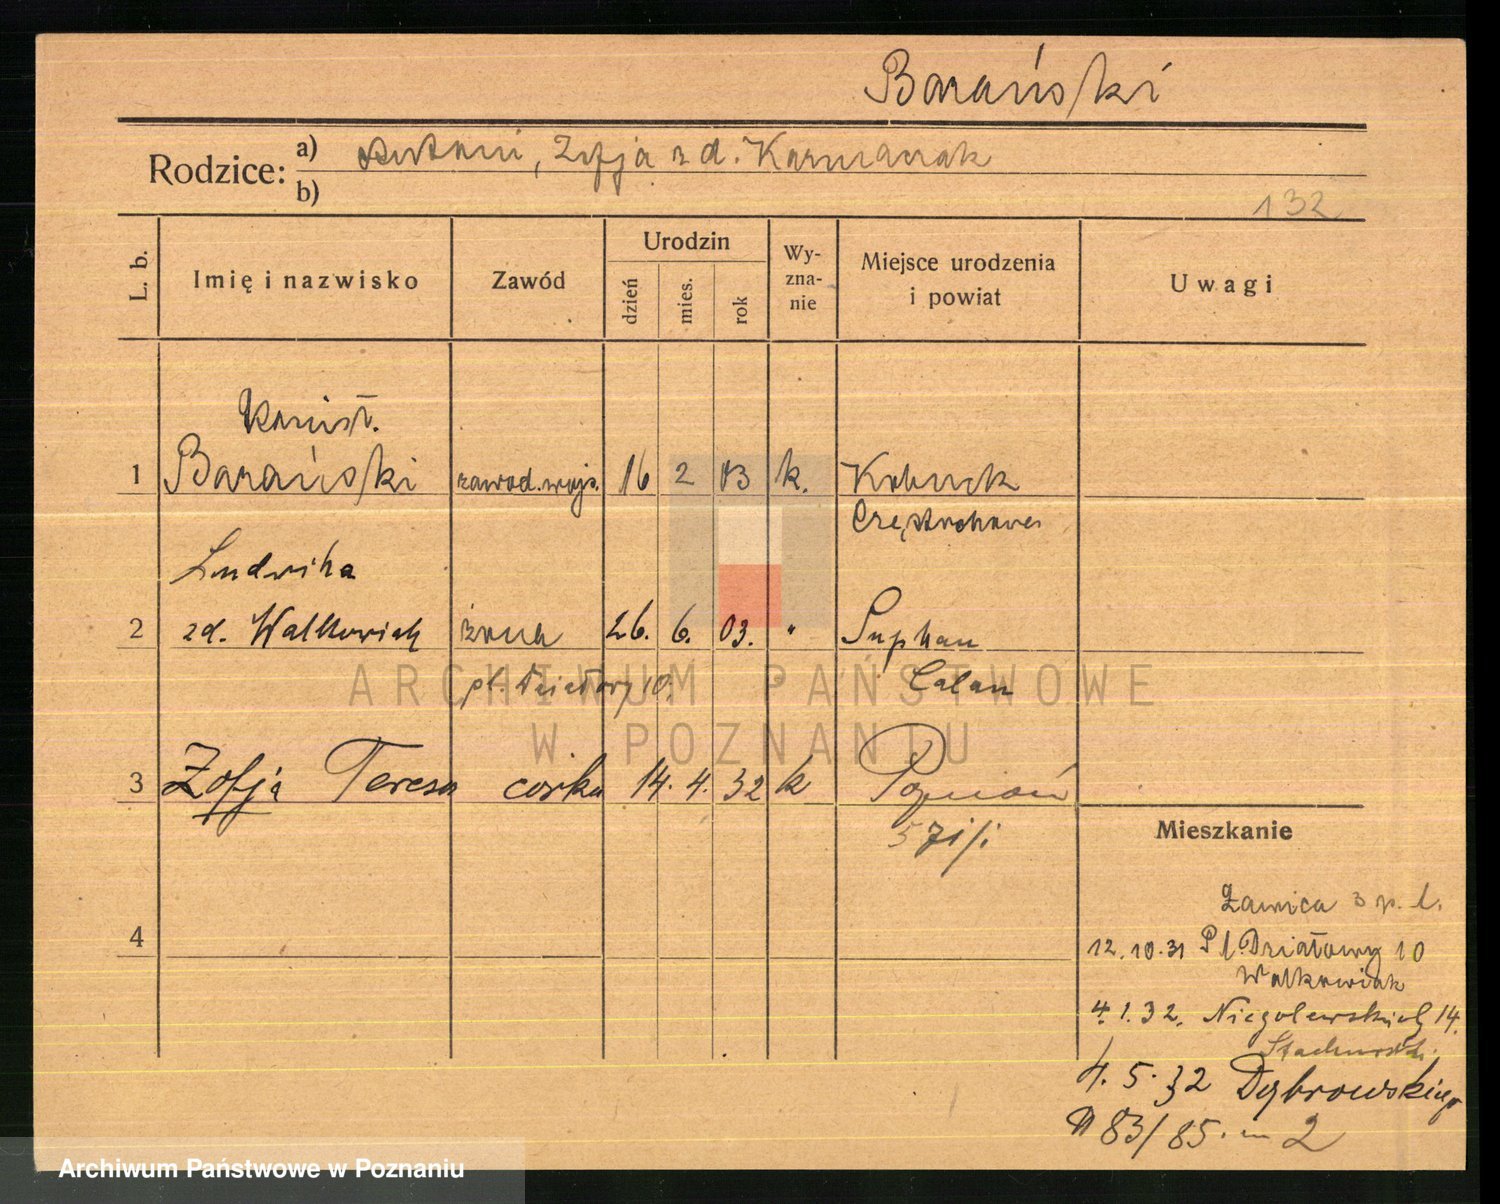 Barański
Rodzice: a) Antoni, Zofja z d. Karmanak
b)
132
L. b.
Imię i nazwisko
Zawód
Urodzin
dzień
mies.
rok
Wy-
zna-
nie
Miejsce urodzenia
i powiat
Uwagi
1 Barański zawod. wojs. 16 2 03 k. Kłobuck
Częstochowa
Ludwika
2 zd. Walkowiak żona 26. 6. 03. "
pl. Działowy 10.
3 Zofja Teresa córka 14. 4. 32 k Poznań
Mieszkanie
4
Ławica 3 p. l.
12.10.31 Pl. Działowy 10
Walkowiak
4.1.32. Niegolewskich 14.
4.5.32 Dąbrowskiego
83/85. m 2
ARCHIWUM PAŃSTWOWE
W POZNANIU
Archiwum Państwowe w Poznaniu